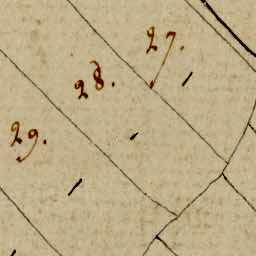 27.
28.
29.